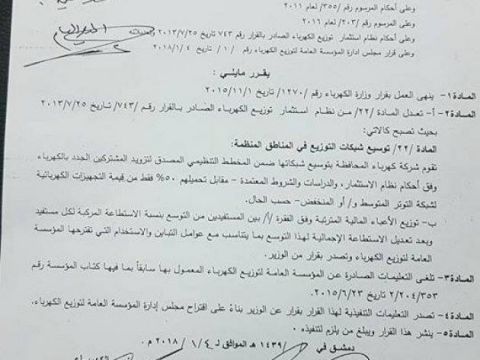 وعلى أحكام المرسوم رقم /٣٥٥/ لعام ٢٠١١
وعلى المرسوم رقم /٢٠٣/ لعام ٢٠١٦
وعلى أحكام نظام استثمار توزيع الكهرباء الصادر بالقرار ٧٤٣ تاريخ ٢٠١٣/٧/٢٥
وعلى قرار مجلس إدارة المؤسسة العامة لتوزيع الكهرباء رقم /١/ تاريخ ٢٠١٨/١/٤
يقرر مايلي :
المادة ١- ينهى العمل بقرار وزارة الكهرباء رقم /١٢٧٠/ تاريخ ٢٠١٥/١١/١
المادة ٢- أ- تعدل المادة /٢٢/ من نظام استثمار توزيع الكهرباء الصادر بالقرار رقم /٧٤٣/ تاريخ ٢٠١٣/٧/٢٥
بحيث تصبح كالآتي:
المادة /٢٢/ توسيع شبكات التوزيع في المناطق المنظمة:
تقوم شركة كهرباء المحافظة بتوسيع شبكاتها ضمن المخطط التنظيمي المصدق لتزويد المشتركين الجدد بالكهرباء
وفق أحكام نظام الاستثمار، والدراسات والشروط المعتمدة - مقابل تحميلهم ٥٠% فقط من قيمة التجهيزات الكهربائية
لشبكة التوتر المتوسط و/ أو المنخفض- حسب الحال.
ب- توزيع الأعباء المالية المترتبة وفق الفقرة /أ/ بين المستفيدين من التوسع بنسبة الاستطاعة المركبة لكل مستفيد
وبعد تعديل الاستطاعة الإجمالية لهذا التوسع بما يتناسب مع عوامل التباين والاستخدام التي تقترحها المؤسسة
العامة لتوزيع الكهرباء وتصدر بقرار من الوزير.
المادة ٣- تلغى التعليمات الصادرة عن المؤسسة العامة لتوزيع الكهرباء المعمول بها سابقاً بما فيها كتاب المؤسسة رقم
٢/٢٠٤/٣٥٣ تاريخ ٢٠١٥/٦/٢٣.
المادة ٤- تصدر التعليمات التنفيذية لهذا القرار بقرار عن الوزير بناءً على اقتراح مجلس إدارة المؤسسة العامة لتوزيع الكهرباء.
المادة ٥- ينشر هذا القرار ويبلغ من يلزم لتنفيذه .
دمشق في / / ١٤٣٩ هـ الموافق لـ ٤ / ١ / ٢٠١٨ م .